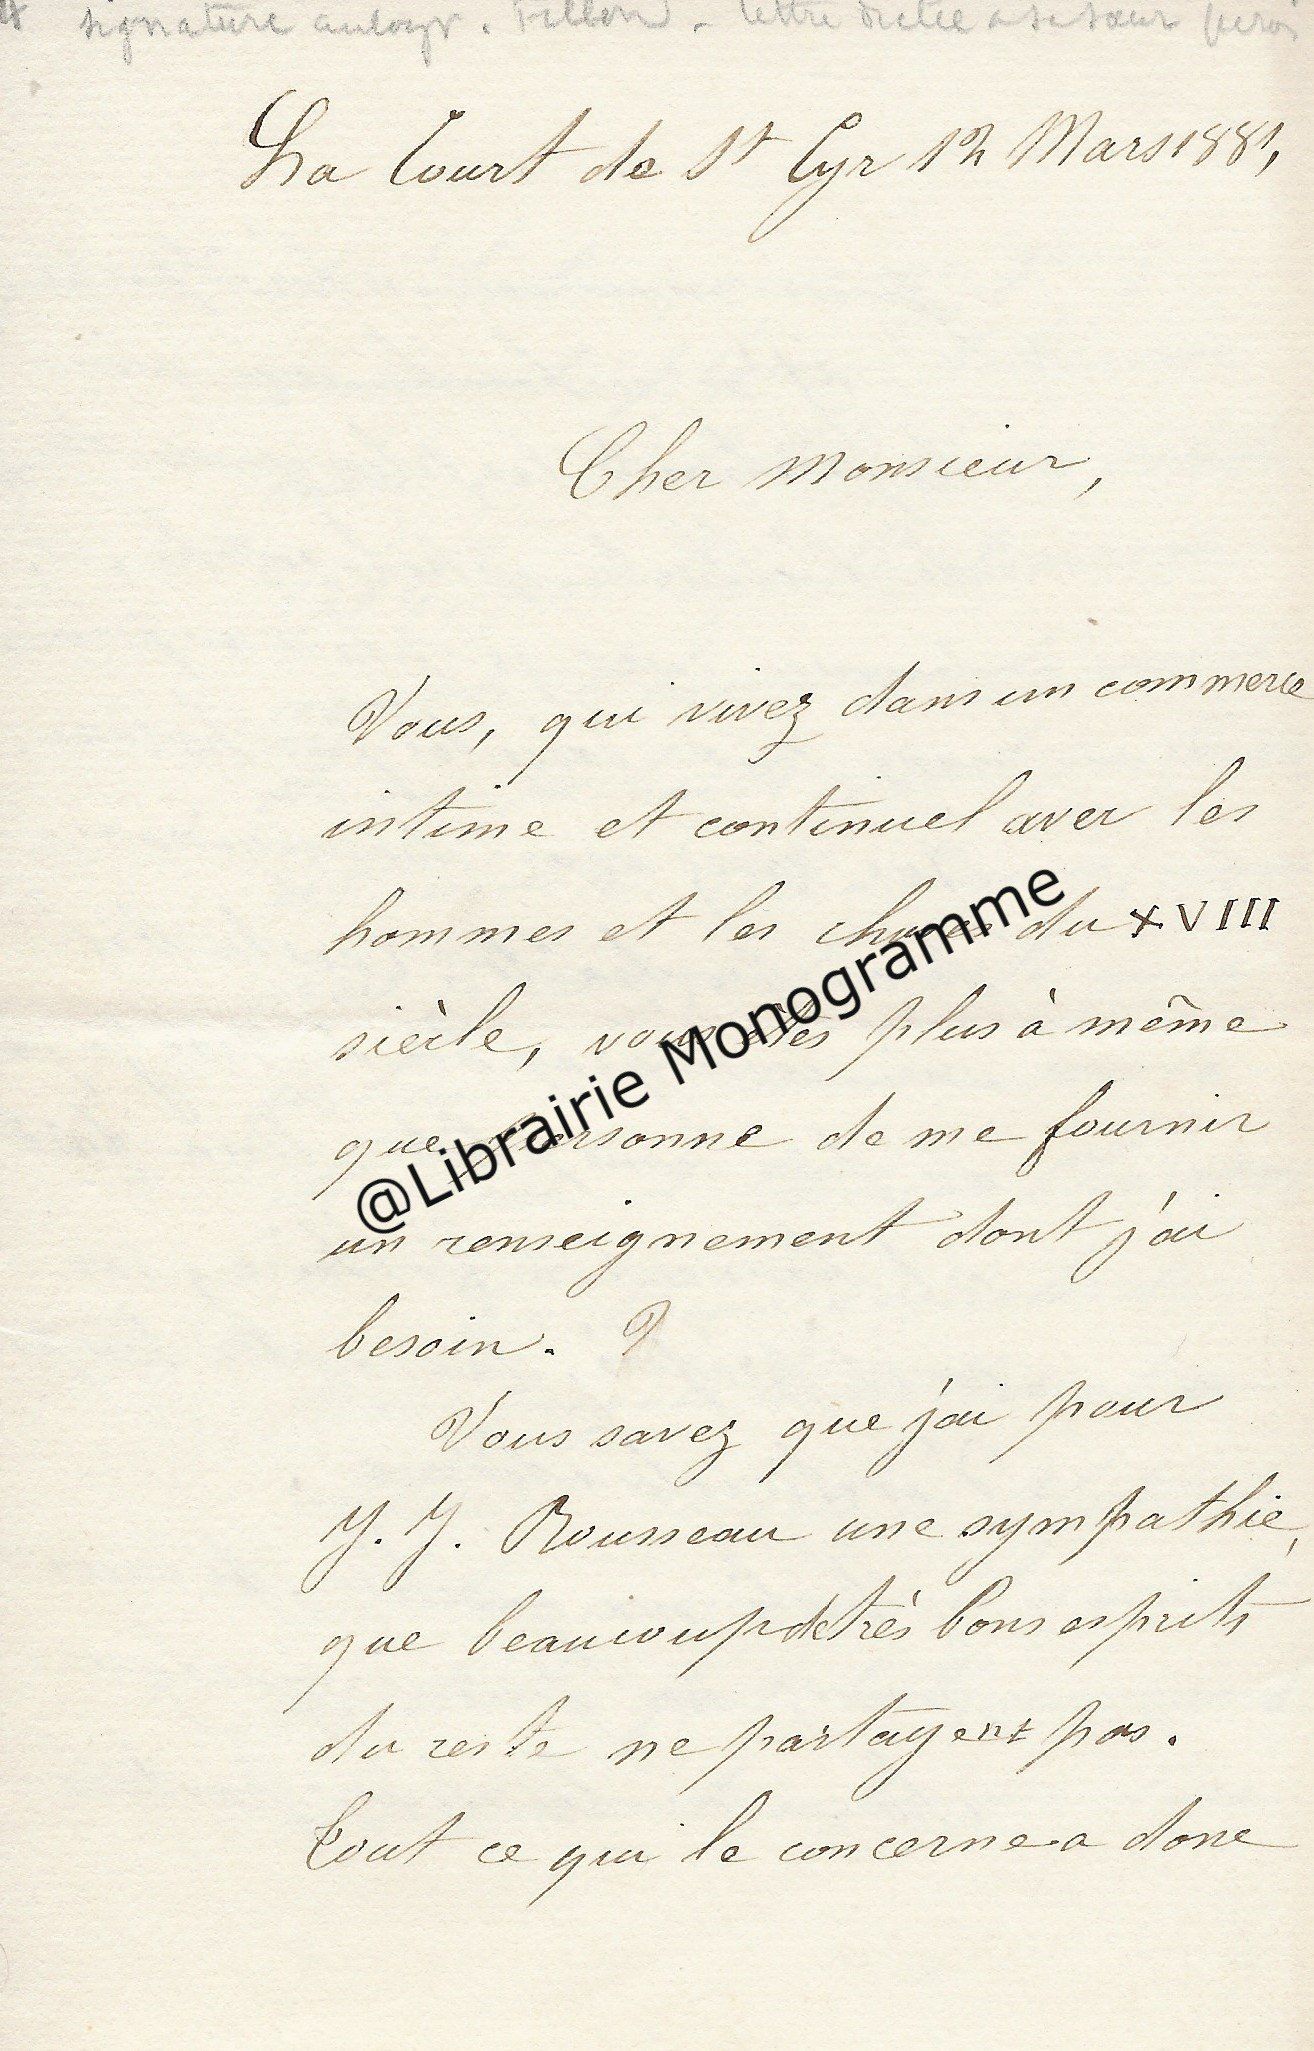 signature autogr. Fillon. lettre dictée à sa sœur
La Court de St Cyr 12 Mars 1881,
Cher Monsieur,
Vous, qui vivez dans un commerce
intime et continuel avec les
hommes et les choses du XVIII
siècle, vous êtes plus à même
que personne de me fournir
un renseignement dont j'ai
besoin.
Vous savez que j'ai pour
J. J. Rousseau une sympathie,
que beaucoup de très bons esprits
du reste ne partagent pas.
Tout ce qui le concerne a donc
@Librairie Monogramme